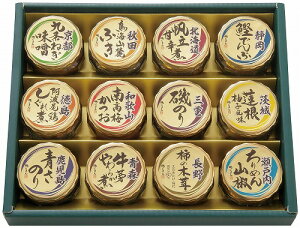 京都
九条ねぎ
味噌
秋田
鳥海山麓
ふき
北海道
帆立
甘辛煮
静岡
鰹こんぶ
徳島
阿波尾鶏
しぐれ煮
和歌山
南高梅
かつお
三重
磯のり
茨城
蓮根
鹿児島
青さ
のり
青森
牛蒡
やわらか煮
長野
柿の木茸
瀬戸内
ちりめん
山椒